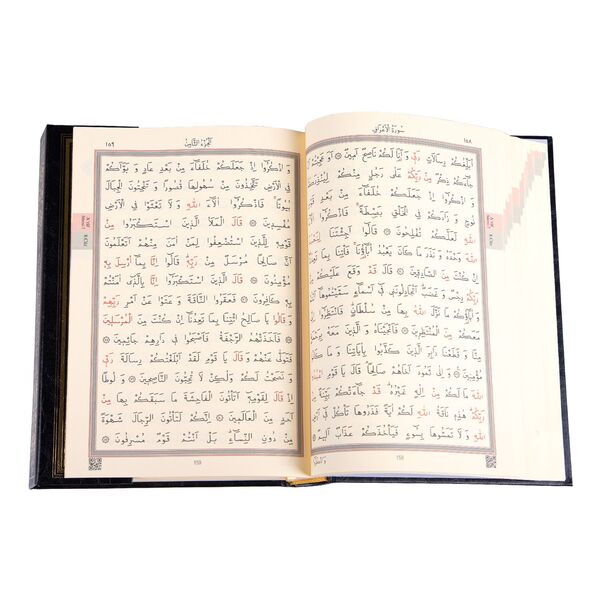 سُورَةُ الْاَعْرَافِ ١٥٨
اُبَلِّغُكُمْ رِسَالَاتِ رَبّ۪ي وَ اَنَا لَكُمْ نَاصِحٌ اَم۪ينٌ ۞ اَوَ عَجِبْتُمْ اَنْ
جَاءَكُمْ ذِكْرٌ مِنْ رَبِّكُمْ عَلٰى رَجُلٍ مِنْكُمْ لِيُنْذِرَكُمْ
وَ اذْكُرُوا اِذْ جَعَلَكُمْ خُلَفَاءَ مِنْ بَعْدِ قَوْمِ
نُوحٍ وَ زَادَكُمْ فِي الْخَلْقِ بَصْطَةً فَاذْكُرُوا اٰلَاءَ
اللّٰهِ لَعَلَّكُمْ تُفْلِحُونَ ۞ قَالُوا اَجِئْتَنَا لِنَعْبُدَ
اللّٰهَ وَحْدَهُ وَ نَذَرَ مَا كَانَ يَعْبُدُ اٰبَاؤُنَا فَأْتِنَا بِمَا تَعِدُنَا
اِنْ كُنْتَ مِنَ الصَّادِق۪ينَ ۞ قَالَ قَدْ وَقَعَ عَلَيْكُمْ مِنْ
رَبِّكُمْ رِجْسٌ وَ غَضَبٌ اَتُجَادِلُونَن۪ي ف۪ي اَسْمَاءٍ سَمَّيْتُمُوهَا اَنْتُمْ
وَ اٰبَاؤُكُمْ مَا نَزَّلَ اللّٰهُ بِهَا مِنْ سُلْطَانٍ فَانْتَظِرُوا اِنّ۪ي
مَعَكُمْ مِنَ الْمُنْتَظِر۪ينَ ۞ فَاَنْجَيْنَاهُ وَ الَّذ۪ينَ مَعَهُ بِرَحْمَةٍ
مِنَّا وَ قَطَعْنَا دَابِرَ الَّذ۪ينَ كَذَّبُوا بِاٰيَاتِنَا وَ مَا كَانُوا
مُؤْمِن۪ينَ ۞ وَ اِلٰى ثَمُودَ اَخَاهُمْ صَالِحًا قَالَ يَا قَوْمِ اعْبُدُوا
اللّٰهَ مَا لَكُمْ مِنْ اِلٰهٍ غَيْرُهُ قَدْ جَاءَتْكُمْ بَيِّنَةٌ مِنْ
رَبِّكُمْ هٰذِه۪ نَاقَةُ اللّٰهِ لَكُمْ اٰيَةً فَذَرُوهَا تَأْكُلْ ف۪ي اَرْضِ
اللّٰهِ وَ لَا تَمَسُّوهَا بِسُوءٍ فَيَأْخُذَكُمْ عَذَابٌ اَل۪يمٌ ۞
158
اَلْجُزْءُ الثَّامِنُ ١٥٩
وَ اذْكُرُوا اِذْ جَعَلَكُمْ خُلَفَاءَ مِنْ بَعْدِ عَادٍ وَ بَوَّاَكُمْ
فِي الْاَرْضِ تَتَّخِذُونَ مِنْ سُهُولِهَا قُصُورًا وَ تَنْحِتُونَ الْجِبَالَ
بُيُوتًا فَاذْكُرُوا اٰلَاءَ اللّٰهِ وَ لَا تَعْثَوْا فِي الْاَرْضِ
مُفْسِد۪ينَ ۞ قَالَ الْمَلَاُ الَّذ۪ينَ اسْتَكْبَرُوا مِنْ
قَوْمِه۪ لِلَّذ۪ينَ اسْتُضْعِفُوا لِمَنْ اٰمَنَ مِنْهُمْ اَتَعْلَمُونَ
اَنَّ صَالِحًا مُرْسَلٌ مِنْ رَبِّه۪ قَالُوا اِنَّا بِمَا اُرْسِلَ بِه۪
مُؤْمِنُونَ ۞ قَالَ الَّذ۪ينَ اسْتَكْبَرُوا اِنَّا بِالَّذ۪ي اٰمَنْتُمْ
بِه۪ كَافِرُونَ ۞ فَعَقَرُوا النَّاقَةَ وَ عَتَوْا عَنْ اَمْرِ رَبِّهِمْ
وَ قَالُوا يَا صَالِحُ ائْتِنَا بِمَا تَعِدُنَا اِنْ كُنْتَ مِنَ الْمُرْسَل۪ينَ
۞ فَاَخَذَتْهُمُ الرَّجْفَةُ فَاَصْبَحُوا ف۪ي دَارِهِمْ جَاثِم۪ينَ ۞
فَتَوَلّٰى عَنْهُمْ وَ قَالَ يَا قَوْمِ لَقَدْ اَبْلَغْتُكُمْ رِسَالَةَ رَبّ۪ي
وَ نَصَحْتُ لَكُمْ وَلٰكِنْ لَا تُحِبُّونَ النَّاصِح۪ينَ ۞ وَ لُوطًا
اِذْ قَالَ لِقَوْمِه۪ اَتَأْتُونَ الْفَاحِشَةَ مَا سَبَقَكُمْ بِهَا مِنْ
اَحَدٍ مِنَ الْعَالَم۪ينَ ۞ اِنَّكُمْ لَتَأْتُونَ الرِّجَالَ شَهْوَةً
مِنْ دُونِ النِّسَاءِ بَلْ اَنْتُمْ قَوْمٌ مُسْرِفُونَ ۞
159